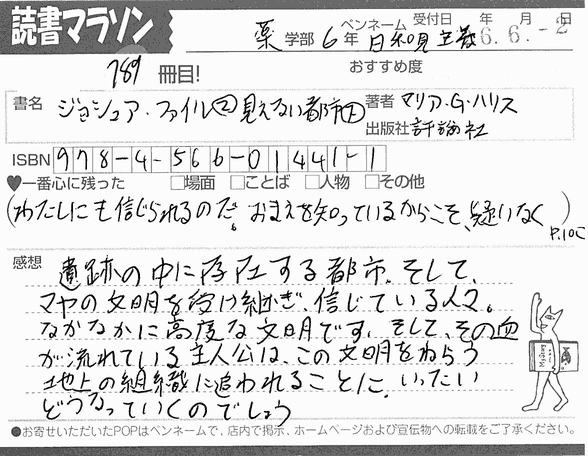 読書マラソン
薬 学部 6 年 ペンネーム 日和見主義 受付日 年 月 日
6.6.-2
789 冊目! おすすめ度
書名 ジョシュア・ファイル② 見えない都市㊦ 著者 マリア・G・ハリス
出版社 評論社
ISBN 978-4-566-01441-1
♥一番心に残った □場面 □ことば □人物 □その他
(わたしにも信じられるのだ。おまえを知っているからこそ、疑いなく) P.100
感想 遺跡の中に存在する都市。そして、
マヤの文明を受け継ぎ、信じている人々。
なかなかに高度な文明です。そして、その血
が流れている主人公は、この文明をねらう
地上の組織に追われることに。いったい
どうなっていくのでしょう
●お寄せいただいたPOPはペンネームで、店内で掲示、ホームページおよび宣伝物への転載をご了承ください。